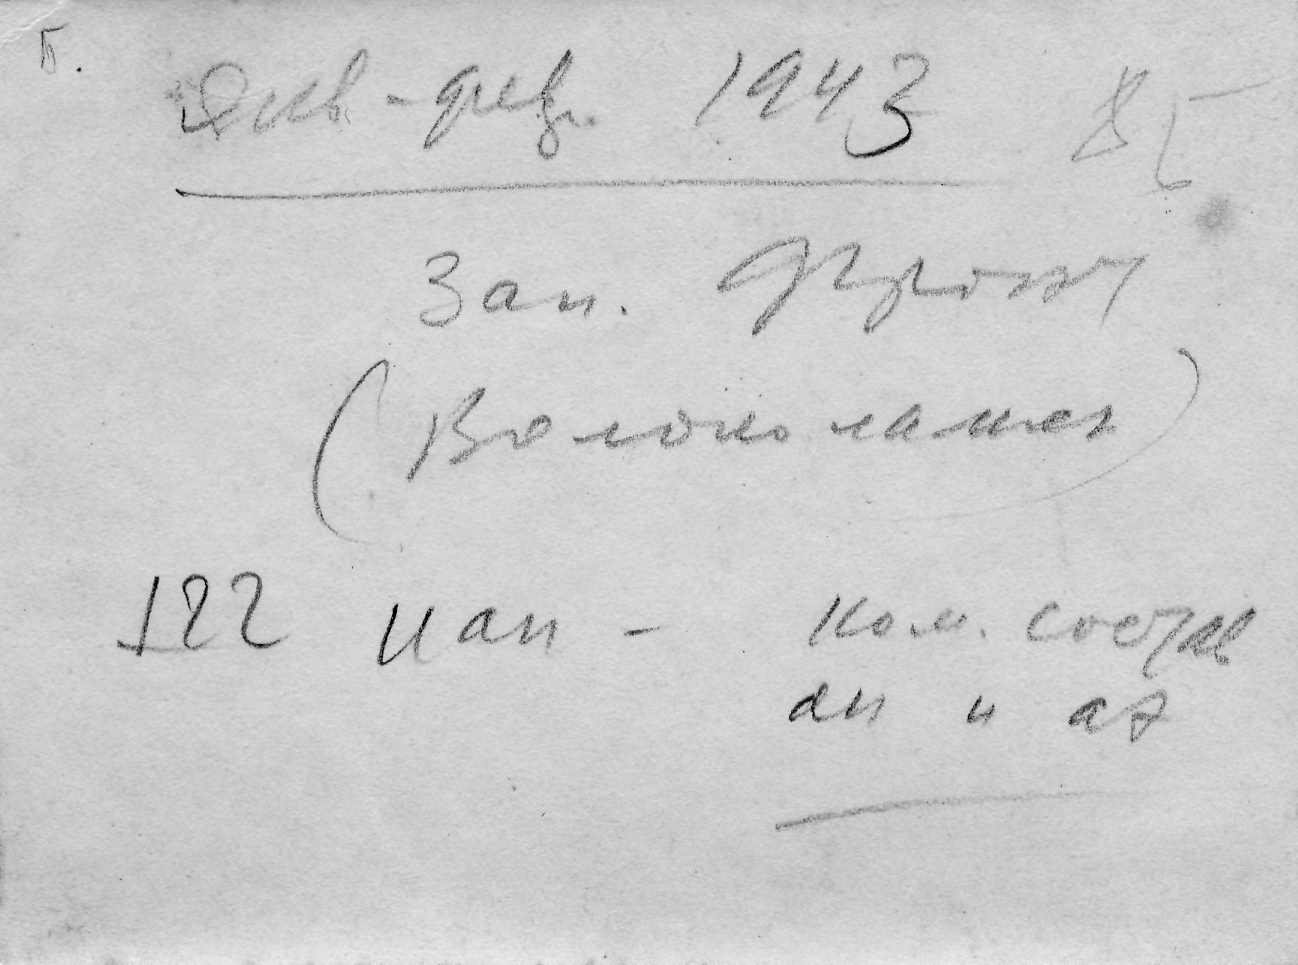 Б.
Янв-февр. 1943 85
Зап. фронт
(Волоколамск)
122 иап - Ком. состав
ап и аэ